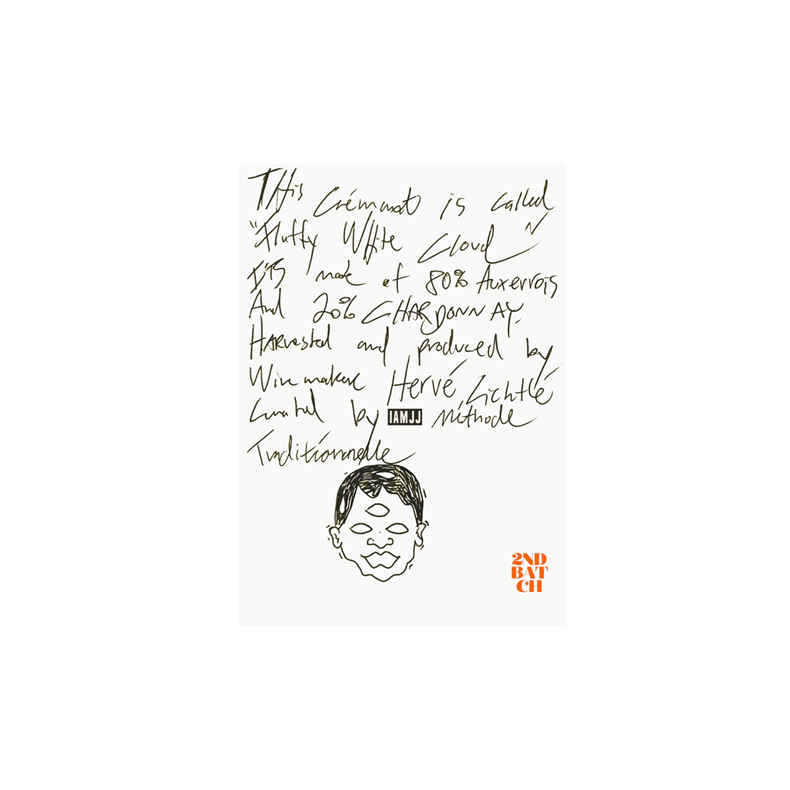 THis Crémmat is called
"Fluffy WHite Cloud"
IT'S made of 80% Auxerrois
And 20% CHARDONNAY.
HARvested and produced by
Winemaker Hervé Lichtlé
Curated by IAMJJ Méthode
Traditionnelle
2ND
BAT
CH